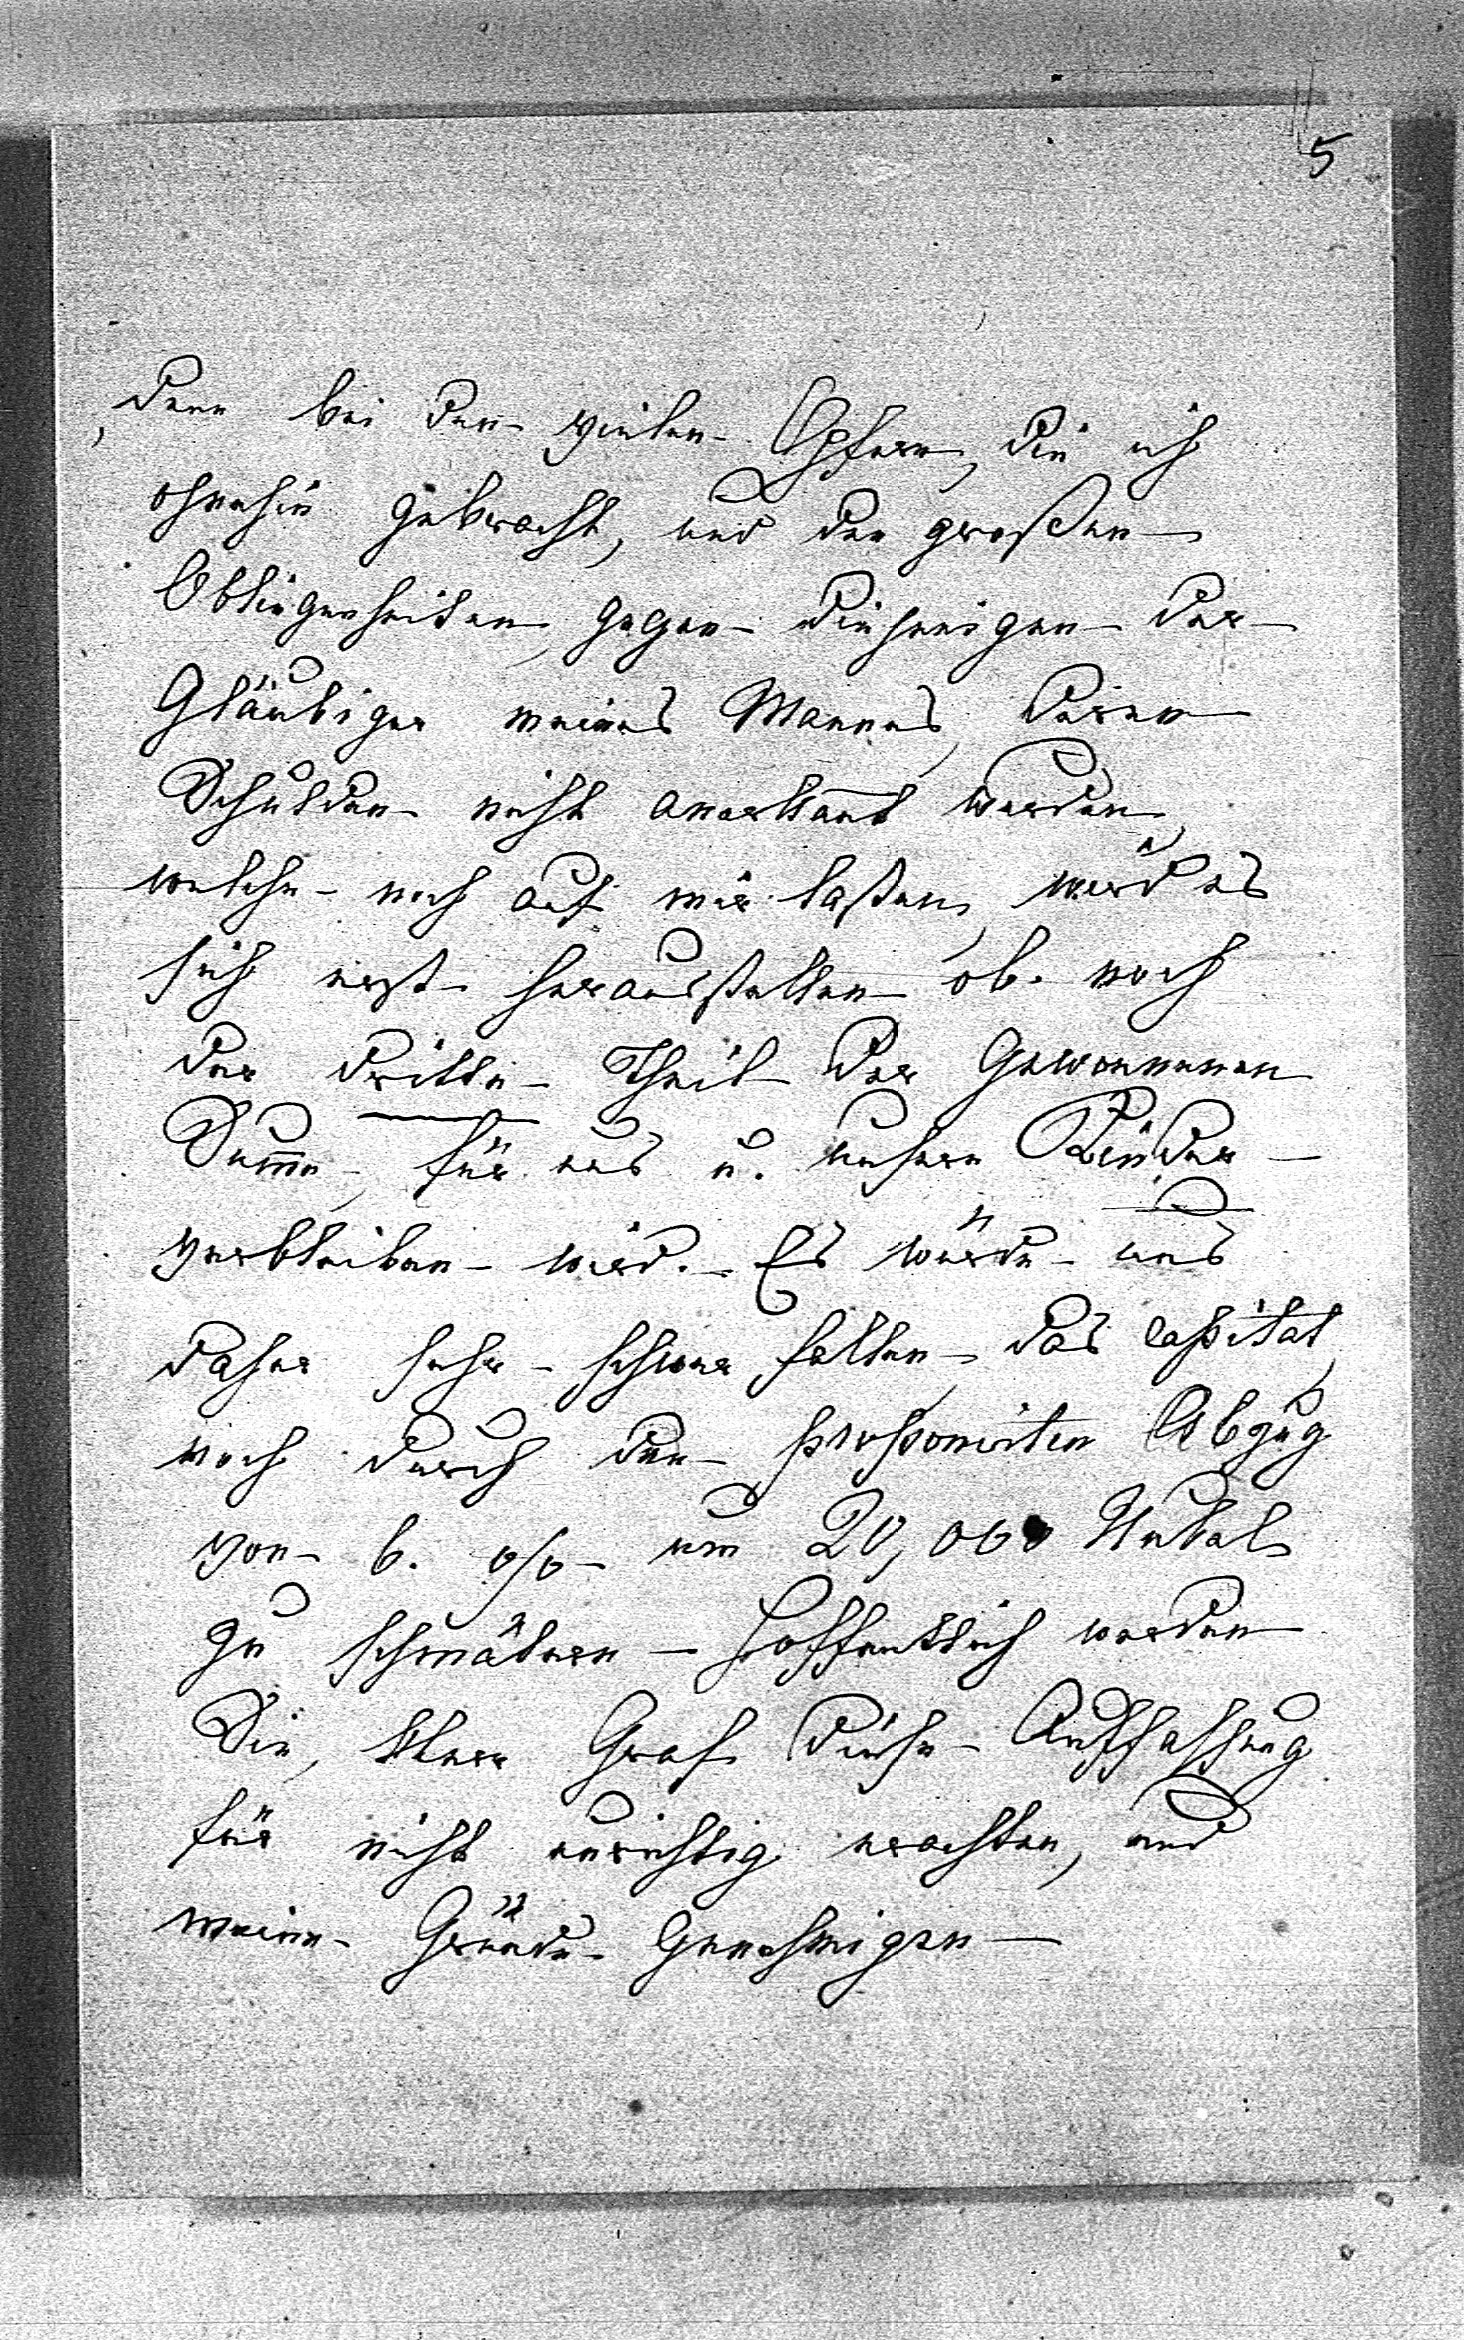 5
denn bei den vielen Opfern, die ich
ohnehin gebracht, und den großen
Obliegenheiten, gegen diejenigen der
Gläubiger meines Mannes, deren
Schulden nicht anerkannt werden,
welche noch auf mir lasten, wird es
sich erst herausstellen ob noch
der dritte Theil der Gewonnenen
Summe, für uns u. unsere Kinder
verbleiben wird. Es würde uns
daher sehr schwer fallen, das Capital,
noch durch den proponirten Abzug
von 6. o/o um 20,000 Rubel
zu schmälern — Hoffentlich werden
Sie, Herr Graf diese Auffassung
für nicht unrichtig erachten, und
meine Gründe Genehmigen —